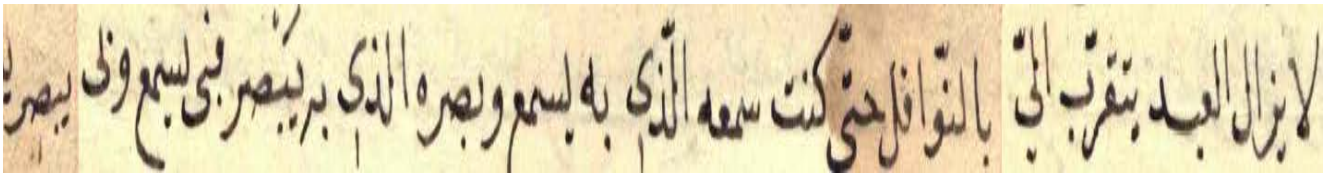 لا يزال العبد يتقرب الىّ بالنّوافل حتىّ كنت سمعه الّذى به يسمع وبصره الذى به يبصر فبى يسمع وبى يبصر